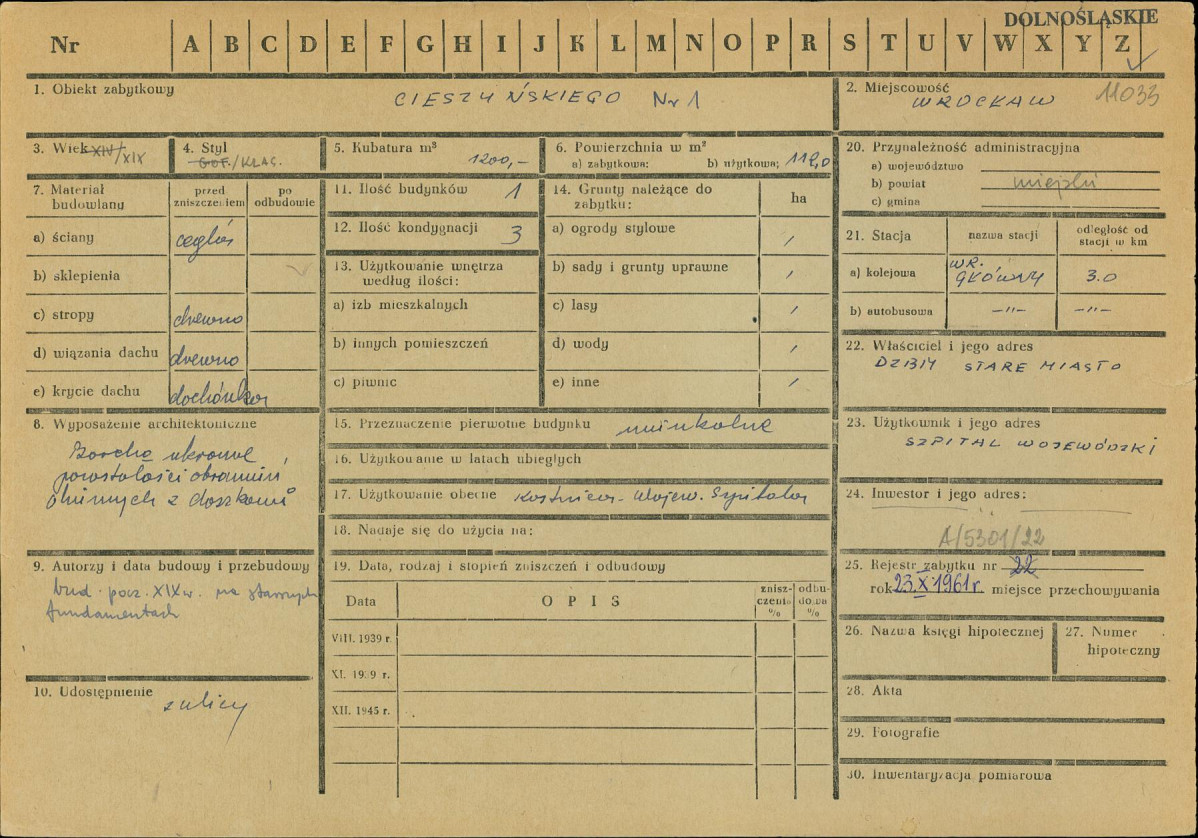 DOLNOŚLĄSKIE
Nr A B C D E F G H I J K L M N O P R S T U V W X Y Z
1. Obiekt zabytkowy
CIESZYŃSKIEGO Nr 1
2. Miejscowość
WROCŁAW 11033
3. Wiek XIV/XIX
4. Styl
GOT./KLAS.
5. Kubatura m³
1200,-
6. Powierzchnia w m²
a) zabytkowa: b) użytkowa: 112,0
7. Materiał budowlany
przed zniszczeniem
po odbudowie
a) ściany cegła
b) sklepienia
c) stropy drewno
d) wiązania dachu drewno
e) krycie dachu dachówka
8. Wyposażenie architektoniczne
pozostałości obramień
z daszkami
9. Autorzy i data budowy i przebudowy
bud. pocz. XIX w. na starszych
fundamentach
10. Udostępnienie
z ulicy
11. Ilość budynków 1
12. Ilość kondygnacji 3
13. Użytkowanie wnętrza
według ilości:
a) izb mieszkalnych
b) innych pomieszczeń
c) piwnic
14. Grunty należące do
zabytku:
ha
a) ogrody stylowe /
b) sady i grunty uprawne /
c) lasy /
d) wody /
e) inne /
15. Przeznaczenie pierwotne budynku mieszkalne
16. Użytkowanie w latach ubiegłych
17. Użytkowanie obecne Kostnica - Wojew. Szpitala
18. Nadaje się do użycia na:
19. Data, rodzaj i stopień zniszczeń i odbudowy
Data
OPIS
znisz-
czenia
%
odbu-
dowa
%
VIII. 1939 r.
XI. 1939 r.
XII. 1945 r.
20. Przynależność administracyjna
a) województwo
b) powiat miejski
c) gmina
21. Stacja
nazwa stacji
odległość od
stacji w km
a) kolejowa WR. GŁÓWNY 3.0
b) autobusowa -"- -"-
22. Właściciel i jego adres
DZBIM STARE MIASTO
23. Użytkownik i jego adres
SZPITAL WOJEWÓDZKI
24. Inwestor i jego adres:
A/5301/22
25. Rejestr zabytku nr 22
rok 23.X.1961r. miejsce przechowywania
26. Nazwa księgi hipotecznej
27. Numer
hipoteczny
28. Akta
29. Fotografie
30. Inwentaryzacja pomiarowa